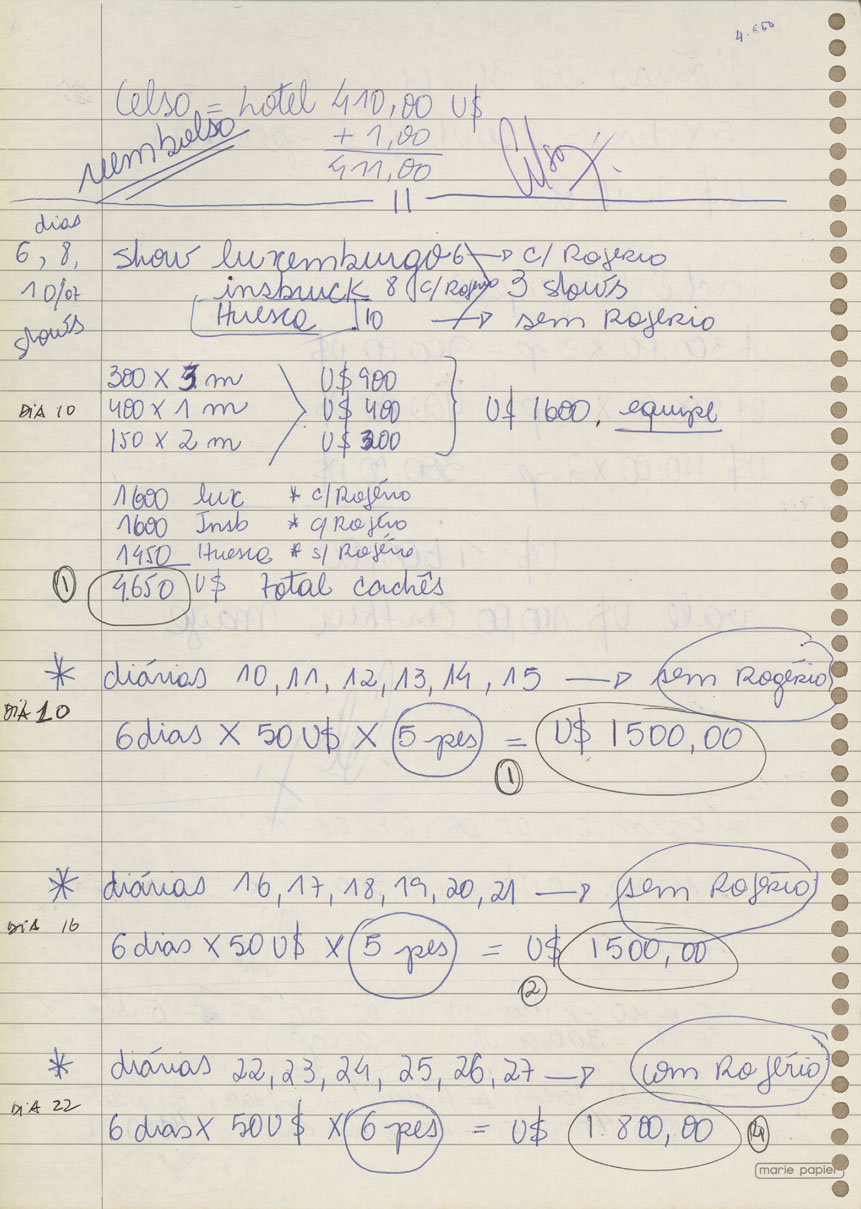 4.650
Celso = hotel 410,00 U$
reembolso + 1,00
411,00
Celso
11
dias
6, 8,
10/07
show's
show luxemburgo 6 → c/ Rogério
insbruck 8 (c/ Rogério 3 show's
Huesca 10 → sem Rogério
300 X 3 m U$ 900
DIA 10 400 X 1 m U$ 400 U$ 1600, equipe
150 X 2 m U$ 300
1600 lux * c/Rogério
1600 Insb * c/Rogério
1450 Huesca * s/ Rogério
1 4.650 U$ total cachês
* diárias 10, 11, 12, 13, 14, 15 → sem Rogério
DIA 10 6 dias X 50 U$ X 5 pes = U$ 1500,00
1
* diárias 16, 17, 18, 19, 20, 21 → sem Rogério
DIA 16 6 dias X 50 U$ X 5 pes = U$ 1500,00
2
* diárias 22, 23, 24, 25, 26, 27 → com Rogério
DIA 22 6 dias X 50 U$ X 6 pes = U$ 1.800,00
marie papier